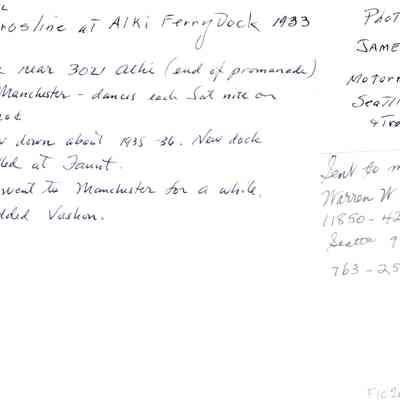 at Alki Ferry Dock 1933
near 3021 Alki (end of promanade)
Manchester - dances each Sat nite on
down about 1935-36. New dock
at Faunt.
went to Manchester for a while,
Vashon.
Phot
JAME
Motorm
Seattl
& Tra
Sent to m
Warren W
11850 - 42
Seattle 9
763 - 25